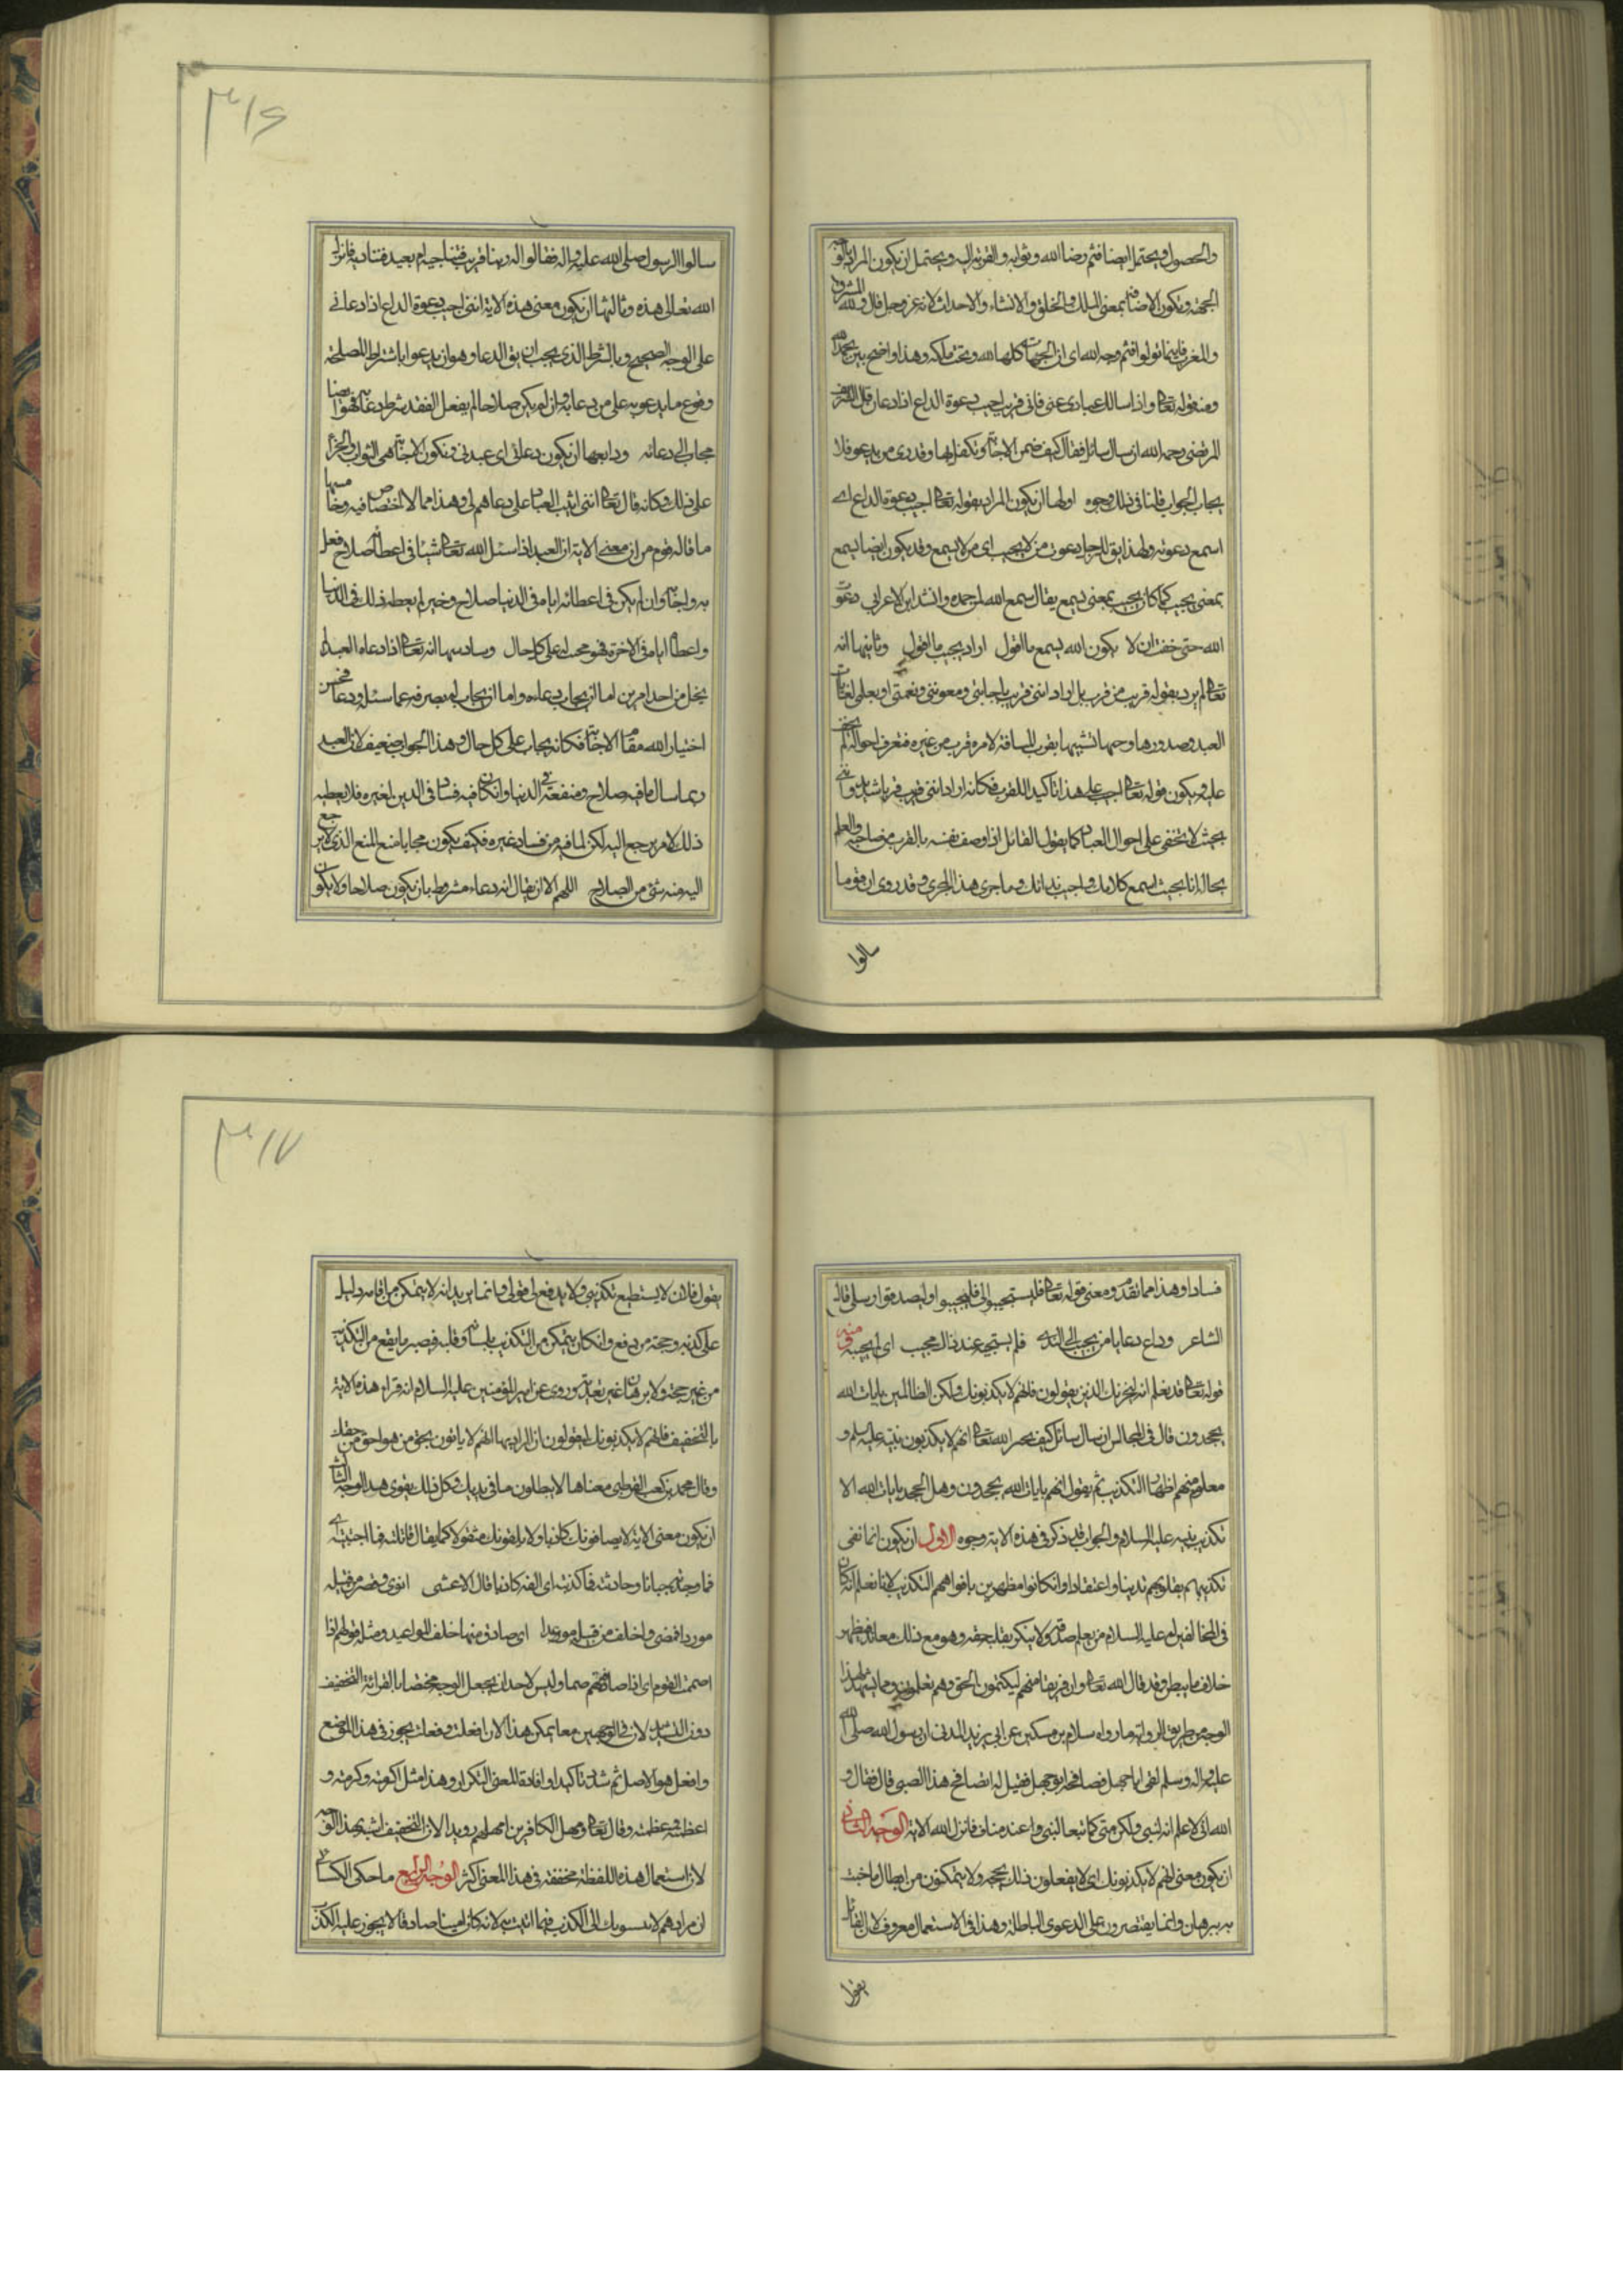 والحصول ويحتمل ايضا فثم رضا الله وثوابه والقربة اليه ويحتمل ان يكون المراد بالوجه
الجهة ويكون الاضافة بمعنى الملك والخلق والانشاء والاحداث لانه عز وجل قال ولله المشرق
والمغرب فاينما تولوا فثم وجه الله اى ان الجهات كلها لله وتحت ملكه وهذا واضح بين بحمد الله
ومنه قوله تعالى واذا سالك عبادى عنى فانى قريب اجيب دعوة الداع اذا دعان قال الشريف
المرتضى رحمه الله ان سال سائل فقال كيف ضمن الاجابة وتكفل بها وقد نرى من يدعو فلا
يجاب الجواب قلنا فى ذلك وجوه اولها ان يكون المراد بقوله تعالى اجيب دعوة الداع اى
اسمع دعوته ولهذا يق للرجل دعوت من لا يجيب اى من لا يسمع وقد يكون ايضا يسمع
بمعنى يجيب كما كان يجيب بمعنى يسمع يقال سمع الله لمن حمده وانشد ابن الاعرابى دعوت
الله حتى خفت ان لا يكون الله يسمع ما اقول اراد يجيب ما اقول وثانيها انه
تعالى لم يرد بقوله قريب من قرب بل اراد اننى قريب باجابتى ومعونتى ونعمتى او بعلمى
العبد وصدورها وحمها تشبيها بقرب المسافة لامره قرب من غيره فعرف احواله لم يخف
عليه ويكون قوله تعالى اجيب على هذا تاكيد اللقرب فكانه اراد اننى قريب قربا شديدا واننى
بحيث لا تخفى على احوال العباد كما يقول القائل اذا وصف نفسه بالقرب من صاحبه والعلم
بحاله انا بحيث اسمع كلامك واجيب ندائك وما جرى هذا المجرى وقد روى ان قوما
سالوا
٣١٦
سالوا الرسول صلى الله عليه واله فقالوا له ربنا قريب فنناجيه ام بعيد فنناديه فانزل
الله تعالى هذه وثالثها ان يكون معنى هذه الاية اننى اجيب دعوة الداع اذا دعانى
على الوجه الصحيح وبالشرط الذى يجب ان يق الدعا وهو ان يدعوا باشتراط المصلحة
وقوع ما يدعو به على من دعا به وان لم يكن صلاحا لم يفعل الفقد شرط دعائه فهو ايضا
مجاب الى دعائه ورابعها ان يكون دعانى اى عبدنى وتكون الاجابة هى الثواب والجزاء
على ذلك وكانه قال تعالى اننى اثيب العباد على دعاهم لى وهذا مما لا اختصاص فيه وخامسها
ما قاله قوم من ان معنى الاية ان العبد اذا سئل الله تعالى شيئا فى اعطائه صلاح فعل
به واجابه وان لم يكن فى اعطائه اياه فى الدنيا صلاح وخير لم يعطه ذلك فى الدنيا
واعطاه اياه فى الاخرة فهو مجيب له على كل حال وسادسها انه تعالى اذا دعاه العبد لم
يخل من احد امرين اما ان يجاب دعاءه واما ان يجاب له بصرفه عما سئل ودعا فحسن
اختيار الله مقام الاجابة فكانه يجاب على كل حال وهذا الجواب ضعيف لان العبد
ربما سال ما فيه صلاح ومنفعة فى الدنيا وان كان فيه فساد فى الدين لغيره فلا يعطيه
ذلك لامر يرجع اليه لكن لما فيه من فساد غيره فكيف يكون مجابا مع المنع الذى لا يرجع
اليه منه شئ من الصلاح اللهم الا ان يقال انه دعاء مشروط بان يكون صلاحا ولا يكون
فسادا وهذا مما تقدم ومعنى قوله تعالى فليستجيبوا لى فليجيبوا وليصدقوا رسلى قال
الشاعر وداع دعا يا من يجيب الى الندى فلم يستجبه عند ذاك مجيب اى لم يجيبه ومنه
قوله تعالى قد نعلم انه ليحزنك الذين يقولون فانهم لا يكذبونك ولكن الظالمين بايات الله
يجحدون قال فى المجالس ان سال سائل كيف يخبر الله تعالى انهم لا يكذبون نبيه عليه السلم و
معلوم منهم اظهار التكذيب ثم يقول انهم بايات الله يجحدون وهل الجحد بايات الله الا
تكذيب نبيه عليه السلام والجواب قد ذكر فى هذه الاية وجوه الاول ان يكون انما نفى
تكذيبهم بقلوبهم تدينا واعتقادا وان كانوا مظهرين بافواههم التكذيب لانا نعلم انه كان
فى المخالفين له عليه السلام من يعلم صدقه ولا ينكر بقلبه حقه وهو مع ذلك معاند فيظهر
خلاف ما يبطن وقد قال الله تعالى وان فريقا منهم ليكتمون الحق وهم يعلمون ومما يشهد لهذا
الوجه من طريق الرواية ما رواه سلام بن مسكين عن ابى يزيد المدنى ان رسول الله صلى الله
عليه واله وسلم لقى ابا جهل فصافحه ابو جهل فقيل له اتصافح هذا الصبى قال فقال و
الله انى لاعلم انه لنبى ولكن متى كنا تبعا لبنى عبد مناف فانزل الله الاية الوجه الثانى
ان يكون معنى انهم لا يكذبونك اى لا يفعلون ذلك بحجة ولا يتمكنون من ابطال ما جئت
به ببرهان وانما يقتصرون على الدعوى الباطلة وهذا فى الاستعمال معروف لان القائل
يقول
٣١٧
يقول فلان لا يستطيع تكذيبى ولا يدفع لى قولى وانما يريد انه لا يتمكن من اقامة دليل
على كذبه وحجة من دفع وان كان يتمكن من التكذيب بلسانه وقلبه فيصير ما يقع من التكذيب
من غير حجة ولا برهان غير معتد به وروى عن امير المؤمنين عليه السلام انه قرا هذه الاية
بالتخفيف فانهم لا يكذبونك ويقولون ان المراد بها انهم لا ياتون بحق من هو احق من حقك
وقال محمد بن كعب القرظى معناها لا يبطلون ما فى يديك وكل ذلك يقوى هذا الوجه الثالث
ان يكون معنى الاية لا يصادفونك كاذبا ولا يلفونك متقولا كما يقال قاتلته فما اجبنته اى
فما وجدته جبانا وحادثته فما كذبته اى الفه كاذبا قال الاعشى اثوى وقصر من قبله
موردا فمضى واخلف من قتيله موعدا اى صادف منها خلف المواعيد ومثله قولهم اذا
اصممت القوم اى اذا صادفتهم صما وليس لاحد ان يجعل الوجه مختصا بالقرائة التخفيف
دون التشديد لان فى الوجهين معا يمكن هذا لان افعلت وفعلت يجوز فى هذا الموضع
وافعل هو الاصل ثم شدد تاكيدا وافادة لمعنى التكرار وهذا مثل اكرمته وكرمته و
اعظمته وعظمته وقال تعالى ومهل الكافرين امهلهم رويدا الا ان التخفيف اشبه بهذا الوجه
لان استعمال هذه اللفظة مخففة فى هذا المعنى اكثر الوجه الرابع ما حكى الكسائى
ان مرادهم لا ينسبونك الى الكذب فيما اتيت به لانه كان امينا صادقا لا يجوز عليه الكذب